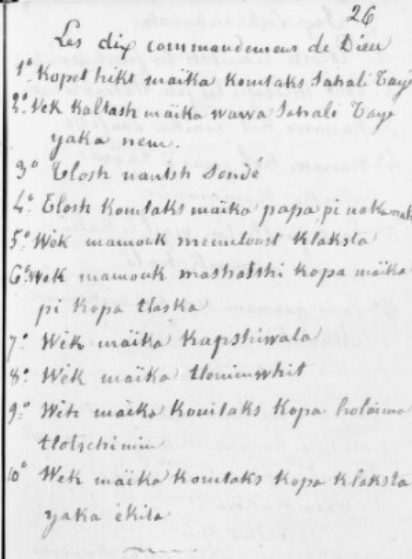 26
Les dix commandemens de Dieu
1º Kopet hikt maika komtaks Sahali Taye
2º Wek kaltash maika wawa Sahali Taye
yaka nem.
3º Tlosh nanitsh Sondé
4º Tlosh komtaks maïka papa pi
5º Wek mamouk memeloost klaksta
6º Wek mamouk mashatshi kopa maïka
pi kopa tlaska
7º Wek maïka Kapshiwala
8º Wek maïka tlominwhit
9º Wek maïka komtaks kopa holoima
tlotschimin
10º Wek maïka komtaks kopa klaksta
yaka ékita